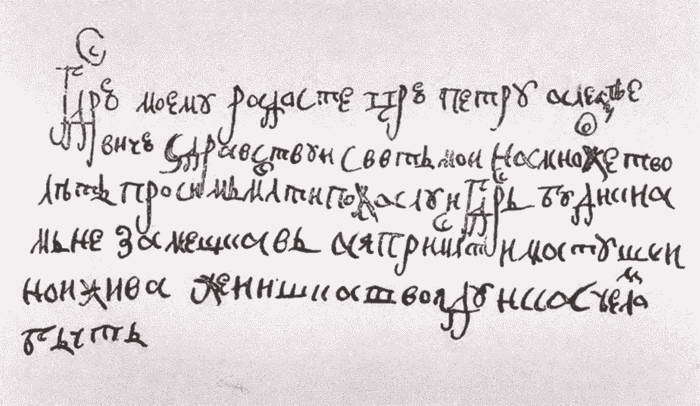 гдрю моемꙋ радасте црю петрꙋ алеѯѣе
вичю здравствꙋи светъ мои на множество
лѣтъ просимъ млсти пожалꙋи гдрь бꙋди к на
мъ не замешкавъ а я при млсти матꙋшки
нои жива женишка твоя дꙋнка челом
бьетъ